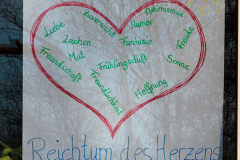 Optimismus
Zuversicht
Humor
Liebe
Lachen
Fantasie
Freude
Mut
Frühlingsduft
Sonne
Freundschaft
Freundlichkeit
Hoffnung
Reichtum des Herzens